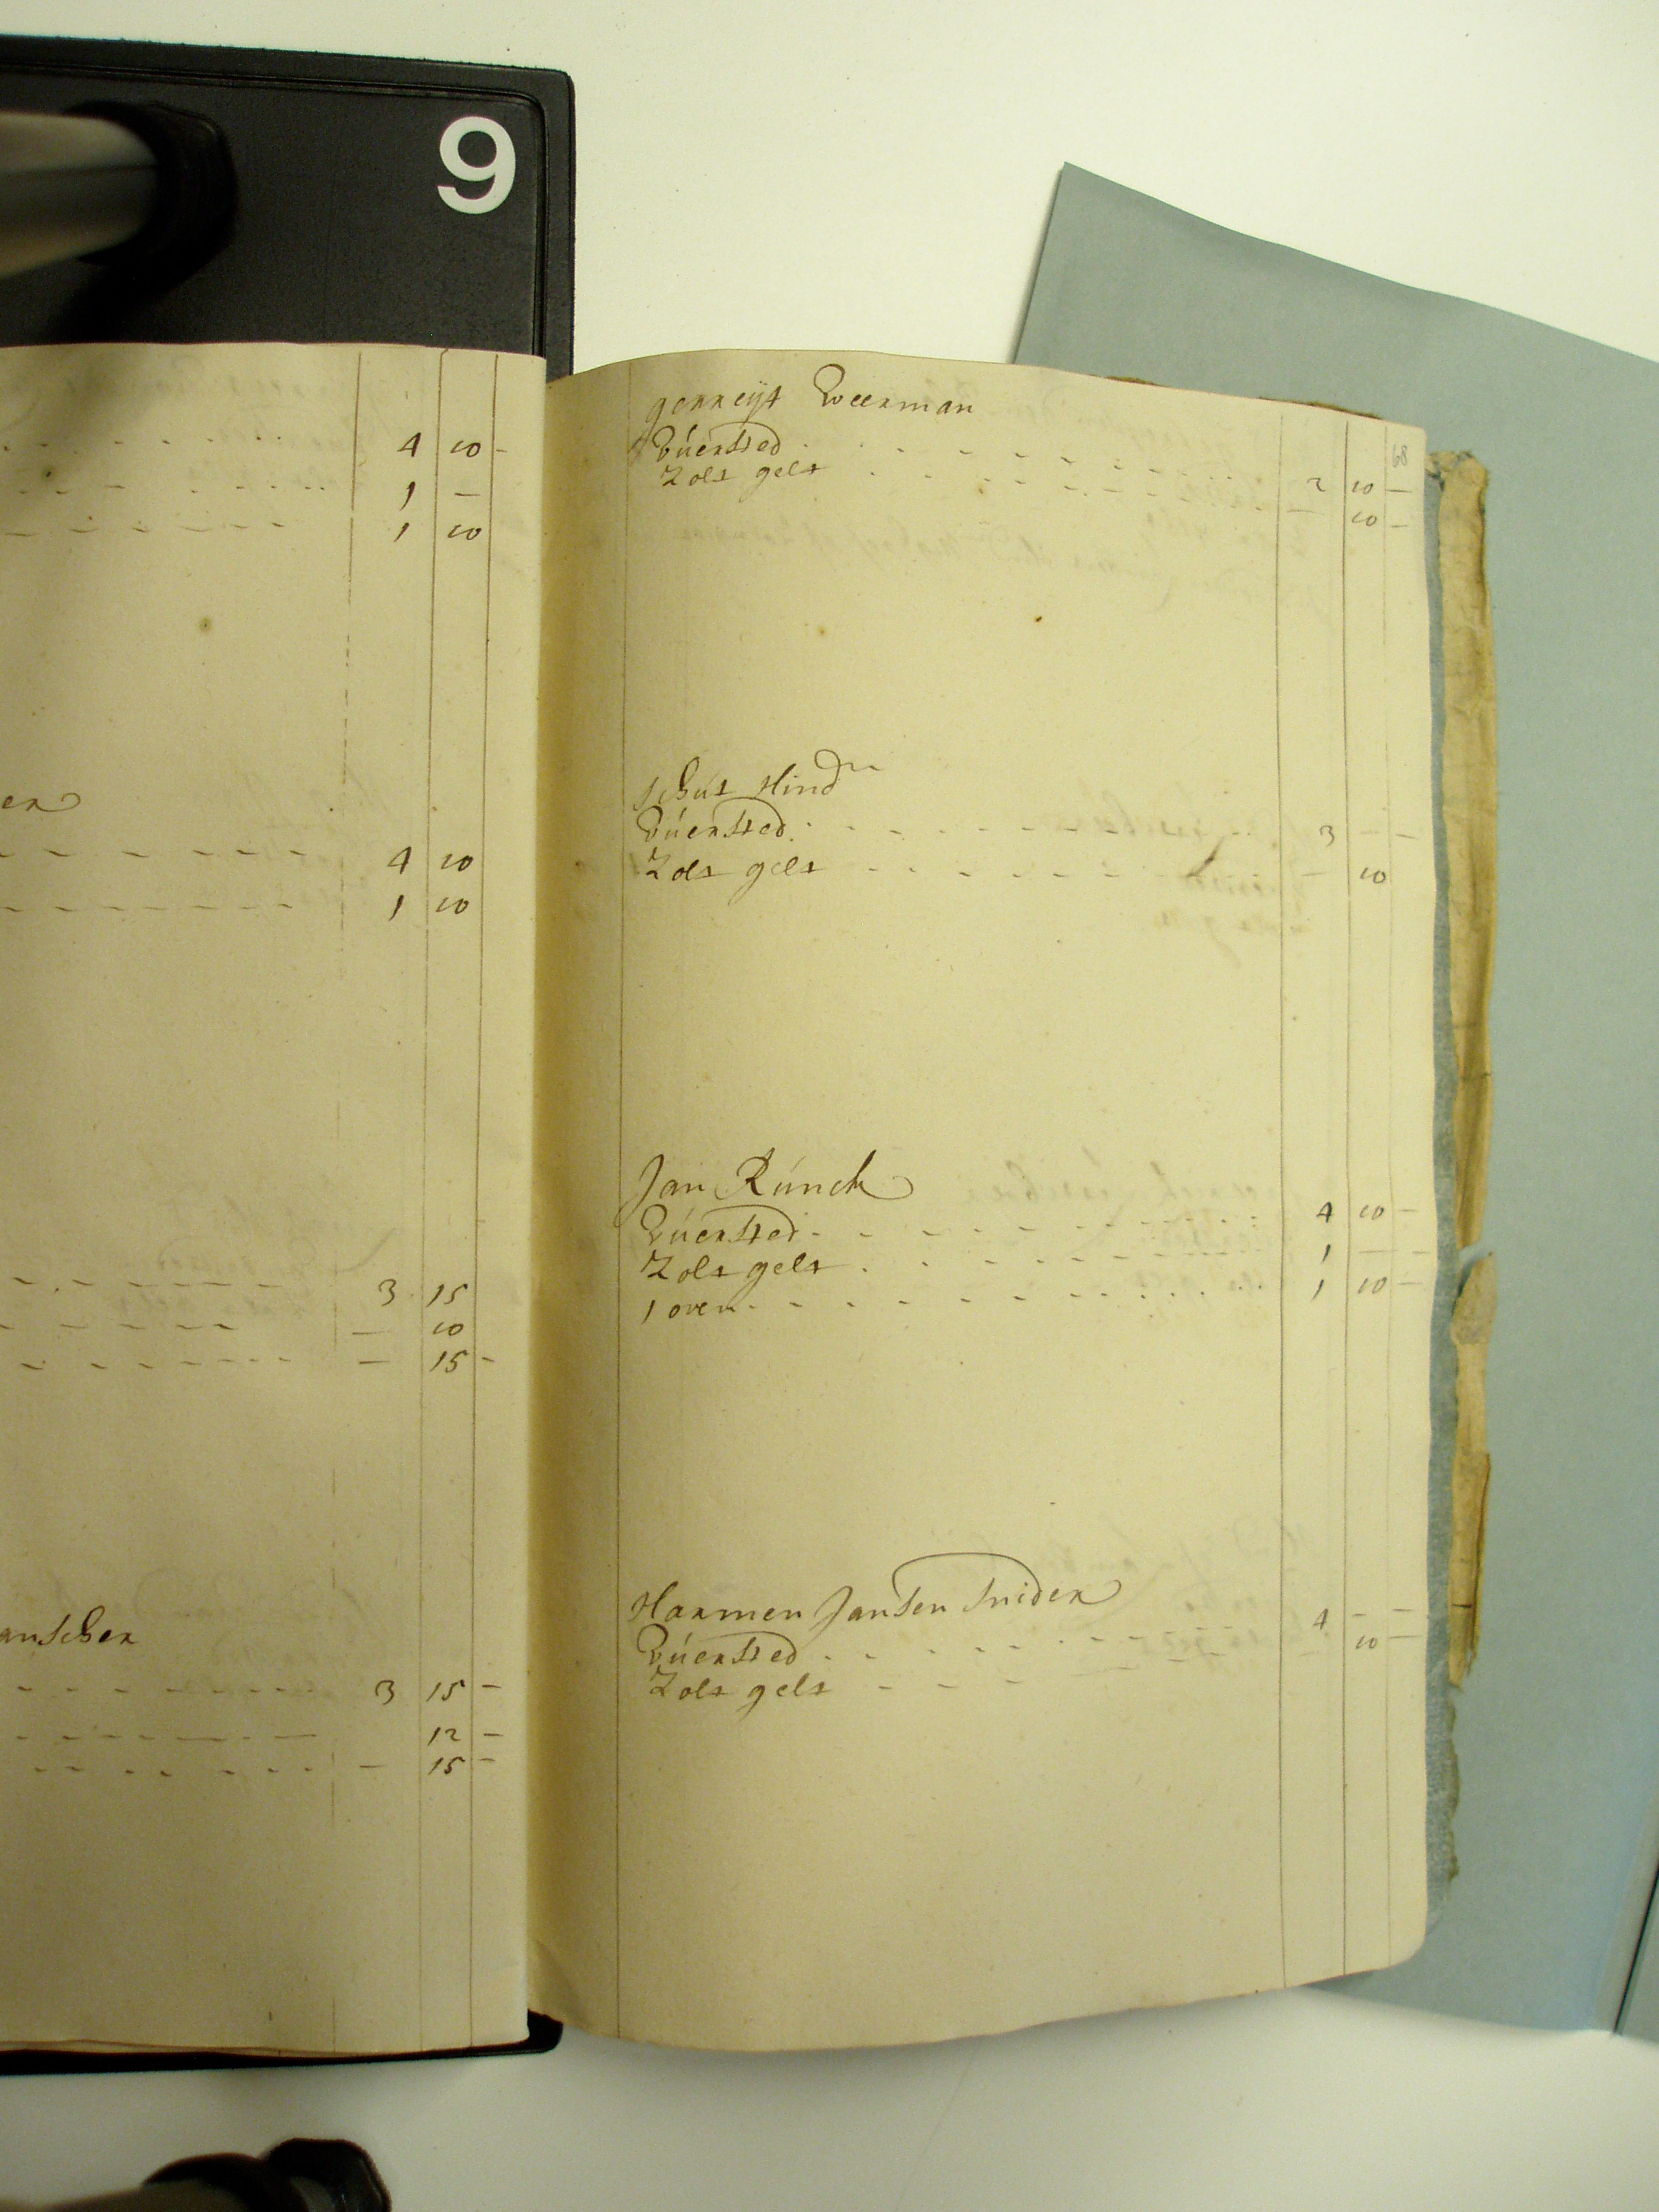 9
4 10 -
1 -
1 10
en
4 10
1 10
3 15
- 10
- 15 -
anscher
3 15 -
12 -
- 15 -
68
gerreijt Weerman
Vúersted 2 10 -
Zols gelt - 10 -
Schút Hindr
Vúersted 3 - -
Zols gelt - 10
Jan Rúnck
Vúersted 4 10 -
Zols gelt 1 - -
1 oven 1 10 -
Harmen Jansen Snider
Vúersted 4 - -
Zols gels 10 -